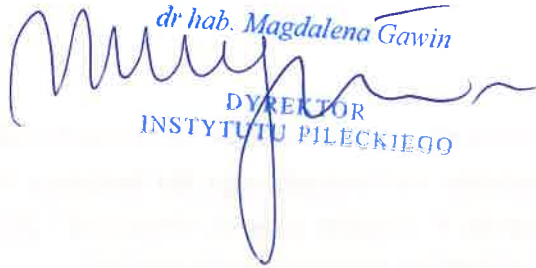 dr hab. Magdalena Gawin
DYREKTOR
INSTYTUTU PILECKIEGO